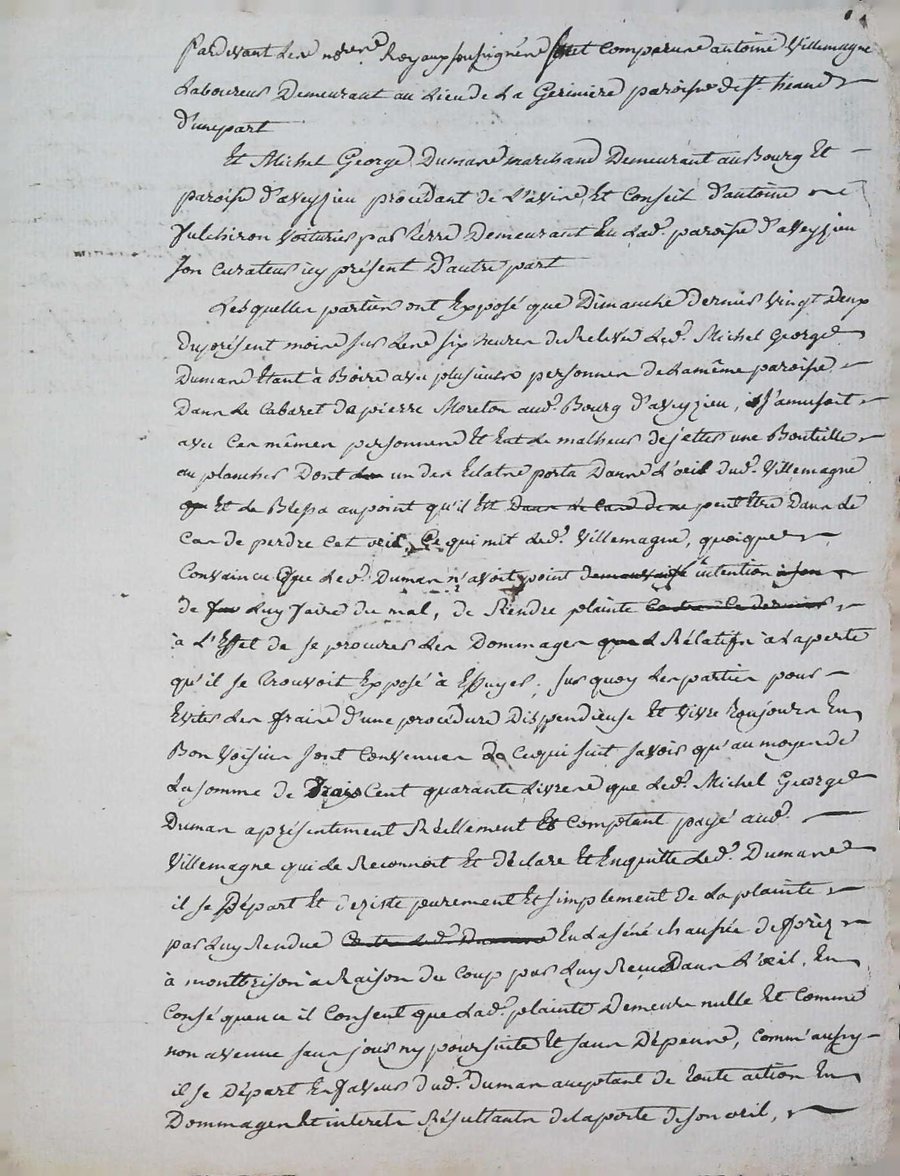 Pardevant les nore. Royaux soussignés sont comparus antoine Villemagne
Laboureur Demeurant au Lieu de La Geriniere paroisse de st. heand
d'une part
Et Michel George Dumas marchand Demeurant au Bourg Et
paroisse d'aveyzieu procédant de L'avis Et Conseil d'antoine
fulchiron Voiturier par terre Demeurant En lad. paroisse d'aveyzieu
son curateur icy présent D'autre part
Lesquelles parties ont Exposé que Dimanche dernier vingt Deux
du présent mois sur les six heures de Relevé Led. Michel George
Dumas Etant à Boire avec plusieurs personnes de La même paroisse
Dans Le Cabaret de pierre Moreton aud. Bourg d'aveyzieu, s'amusoit
avec Ces mêmes personnes Et Eut Le malheur de jetter une Bouteille
au plancher Dont un des Eclats porta Dans L'oeil dud. Villemagne
Et Le Blessa au point qu'il Est Dans le cas de ne peut Etre Dans Le
Cas de perdre Cet oeil, Ce qui mit Led. Villemagne, quoique
Convaincu Que Led. Dumas n'avoit point de mauvaise intention à son
de Luy faire du mal, de Rendre plainte Contre Ce dernier
à L'Effet de se procurer Les Dommages que Rélatifs à La perte
qu'il se trouvoit Exposé à Essuyer; sur quoy Les parties pour
Eviter Les frais d'une procédure Dispendieuse Et vivre toujours En
Bon Voisin sont Convenues de Ce qui suit savoir qu'au moyen de
La somme de Trois Cent quarante Livres que Led. Michel George
Dumas a présentement Réellement Et Comptant payé aud.
Villemagne qui Le Reconnoit Et déclare Et En quitte Led. Dumas
il se Départ Et deziste purement Et simplement de La plainte
par Luy Rendue Contre Led. Dumas En La séné chaussée de forez
à montbrison à Raison du Coup par Luy Reçu Dans L'oeil, En
Conséquence il Consent que Lad. plainte Demeure nulle Et Comme
non avenue sans jour ny poursuite Et sans Dépens, comm'aussy
il se Départ En faveur dud. Dumas acceptant de toute action En
Dommages Et interets Résultants de La perte de son oeil,